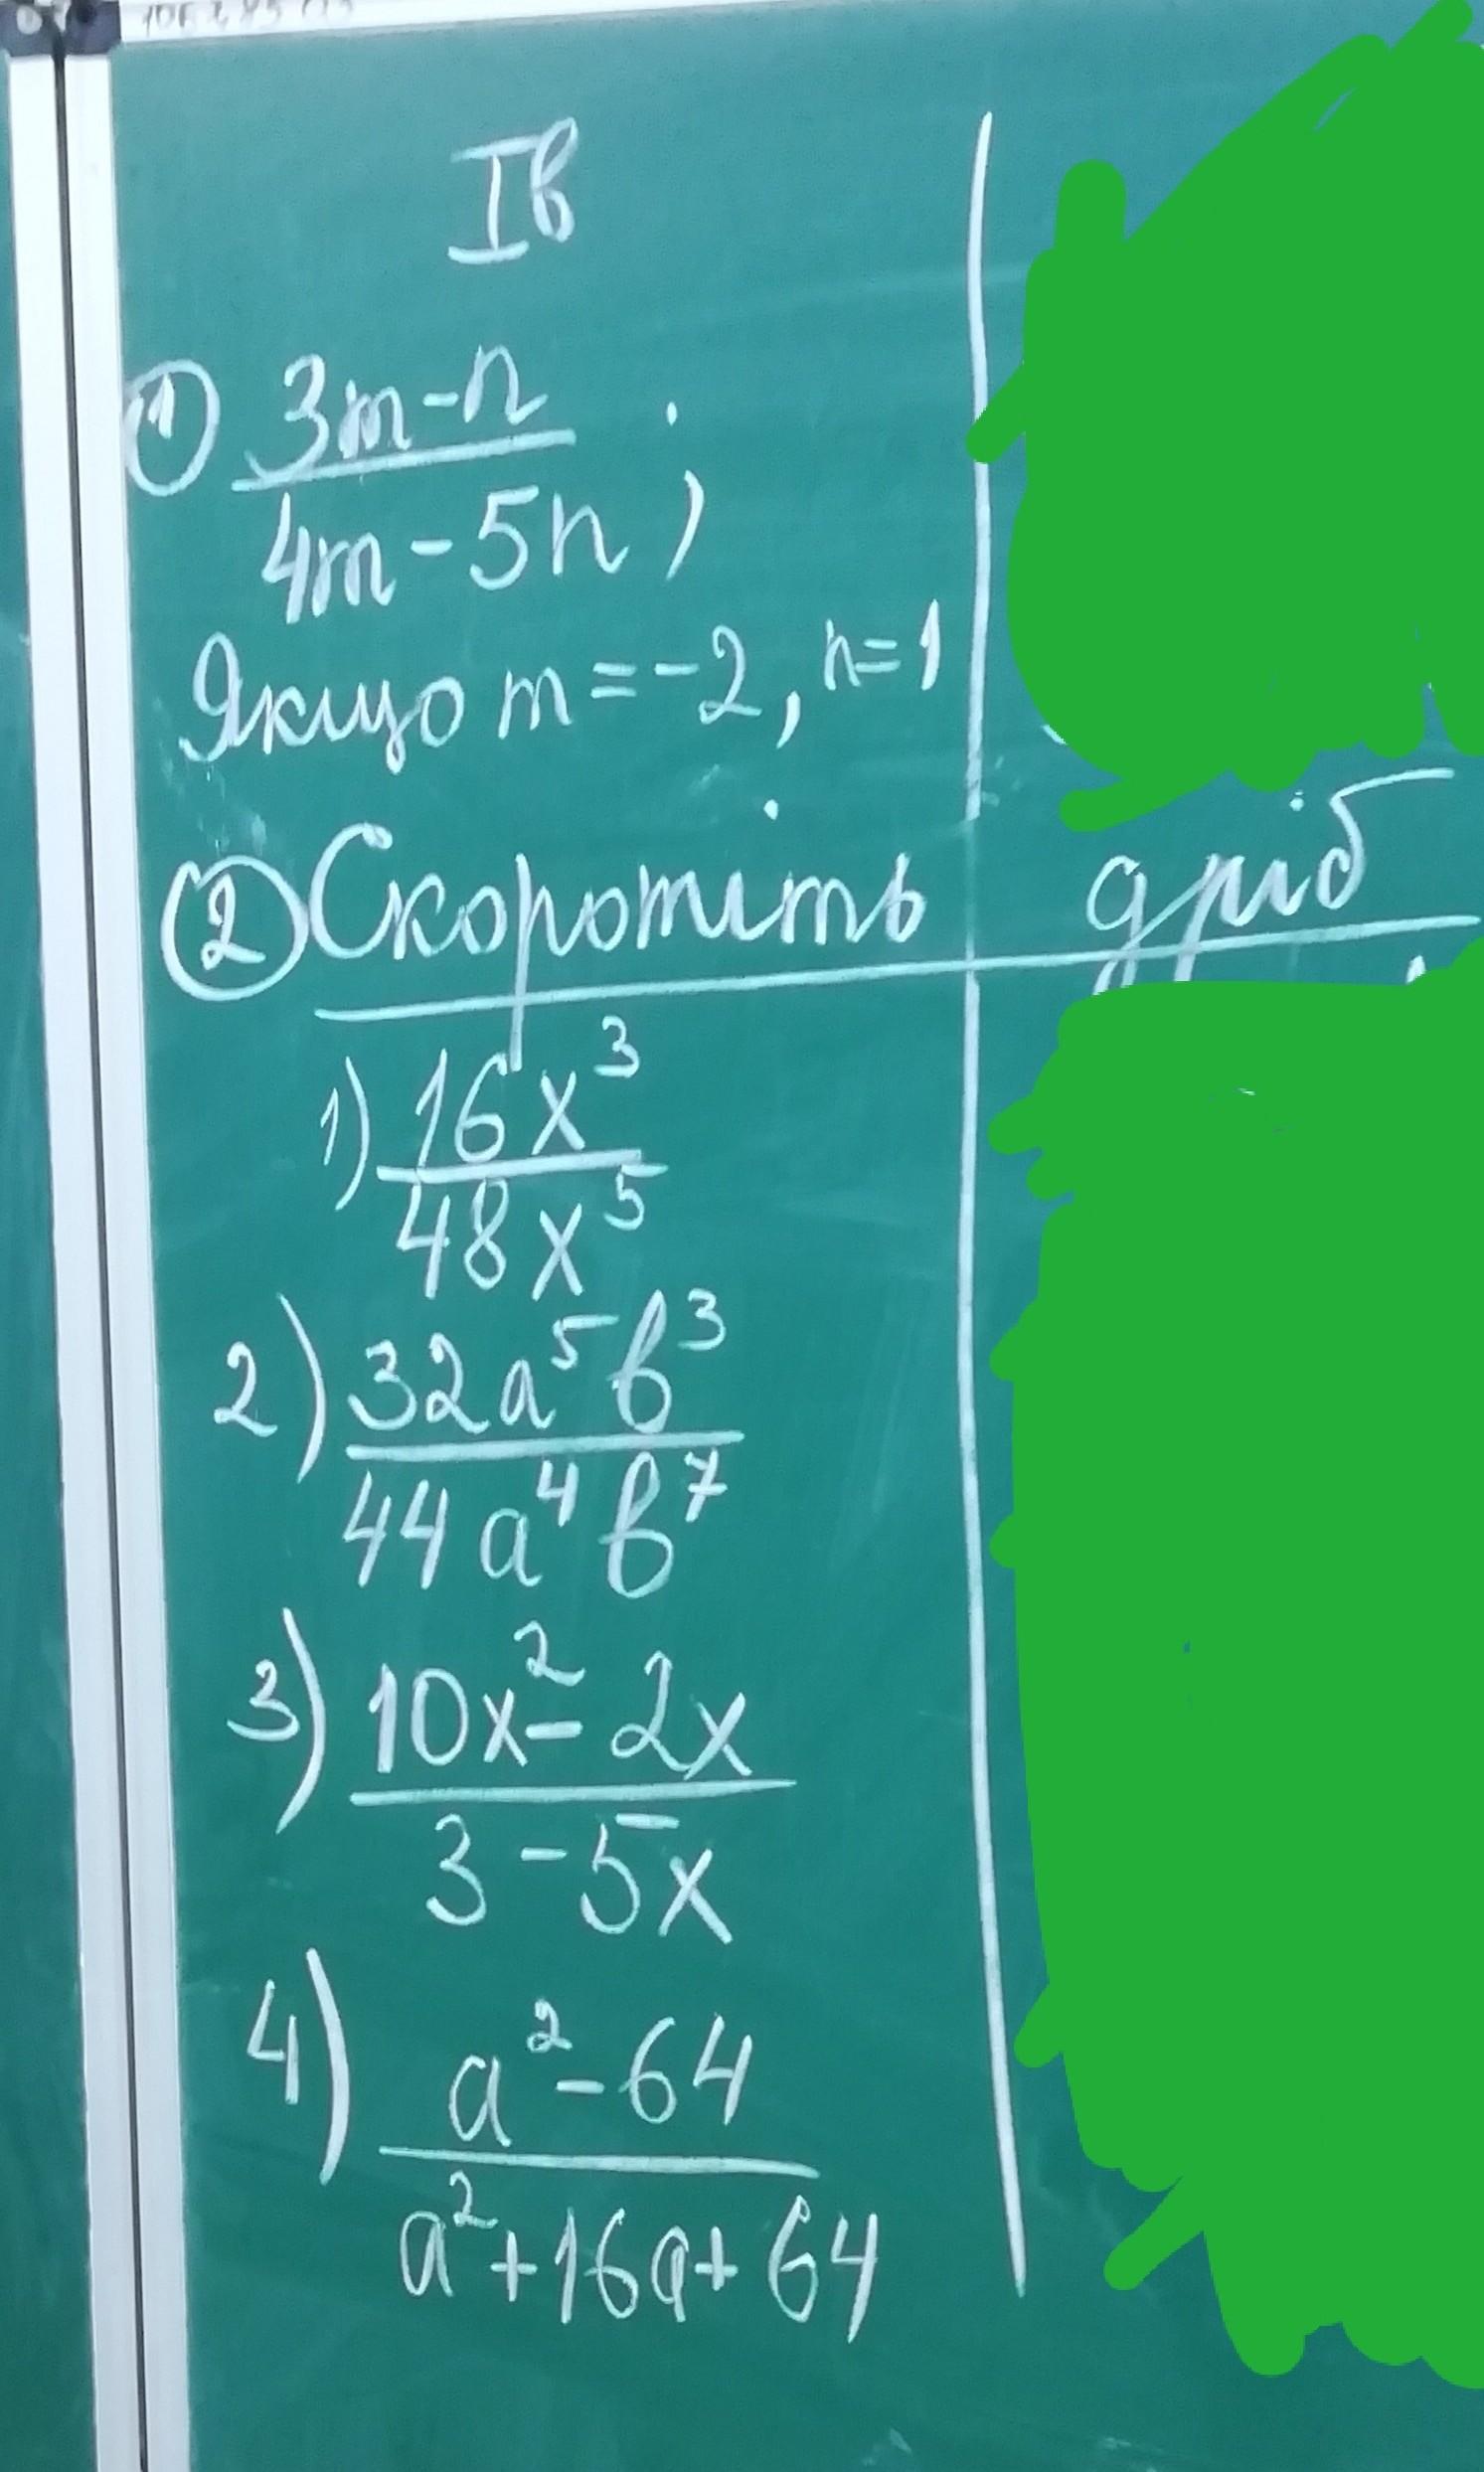 Iв
① 3m-n
4m-5n ;
Якщо m=-2, n=1
② Скоротіть дріб
1) 16x³
48x⁵
2) 32a⁵b³
44a⁴b⁷
3) 10x²-2x
3-5x
4) a²-64
a²+16a+64